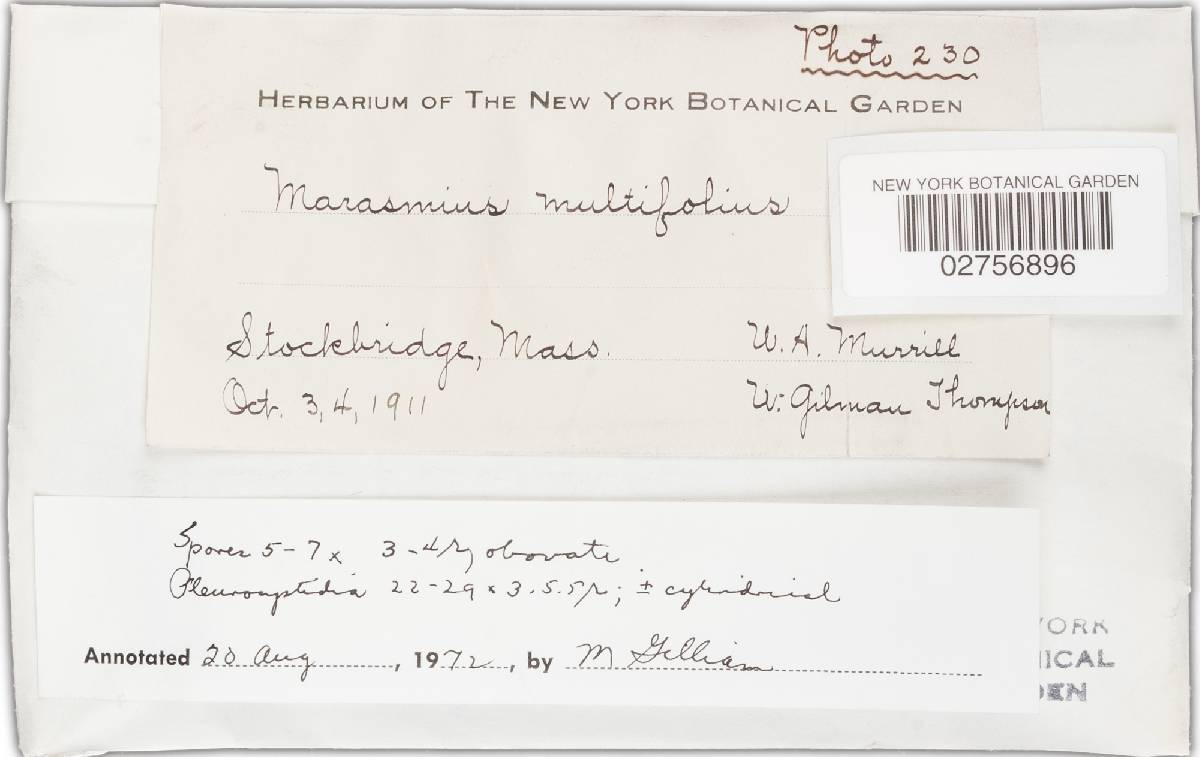 Photo 230
HERBARIUM OF THE NEW YORK BOTANICAL GARDEN
Marasmius multifolius
NEW YORK BOTANICAL GARDEN
02756896
Stockbridge, Mass. W. A. Murrill
Oct. 3, 4, 1911 W. Gilman Thompson
Spores 5-7 x 3-4 μ, obovate
Pleurocystidia 22-29 x 3.5.5 μ; ± cylindrical
Annotated 20 Aug, 1972, by M Gilliam
YORK
ICAL
DEN